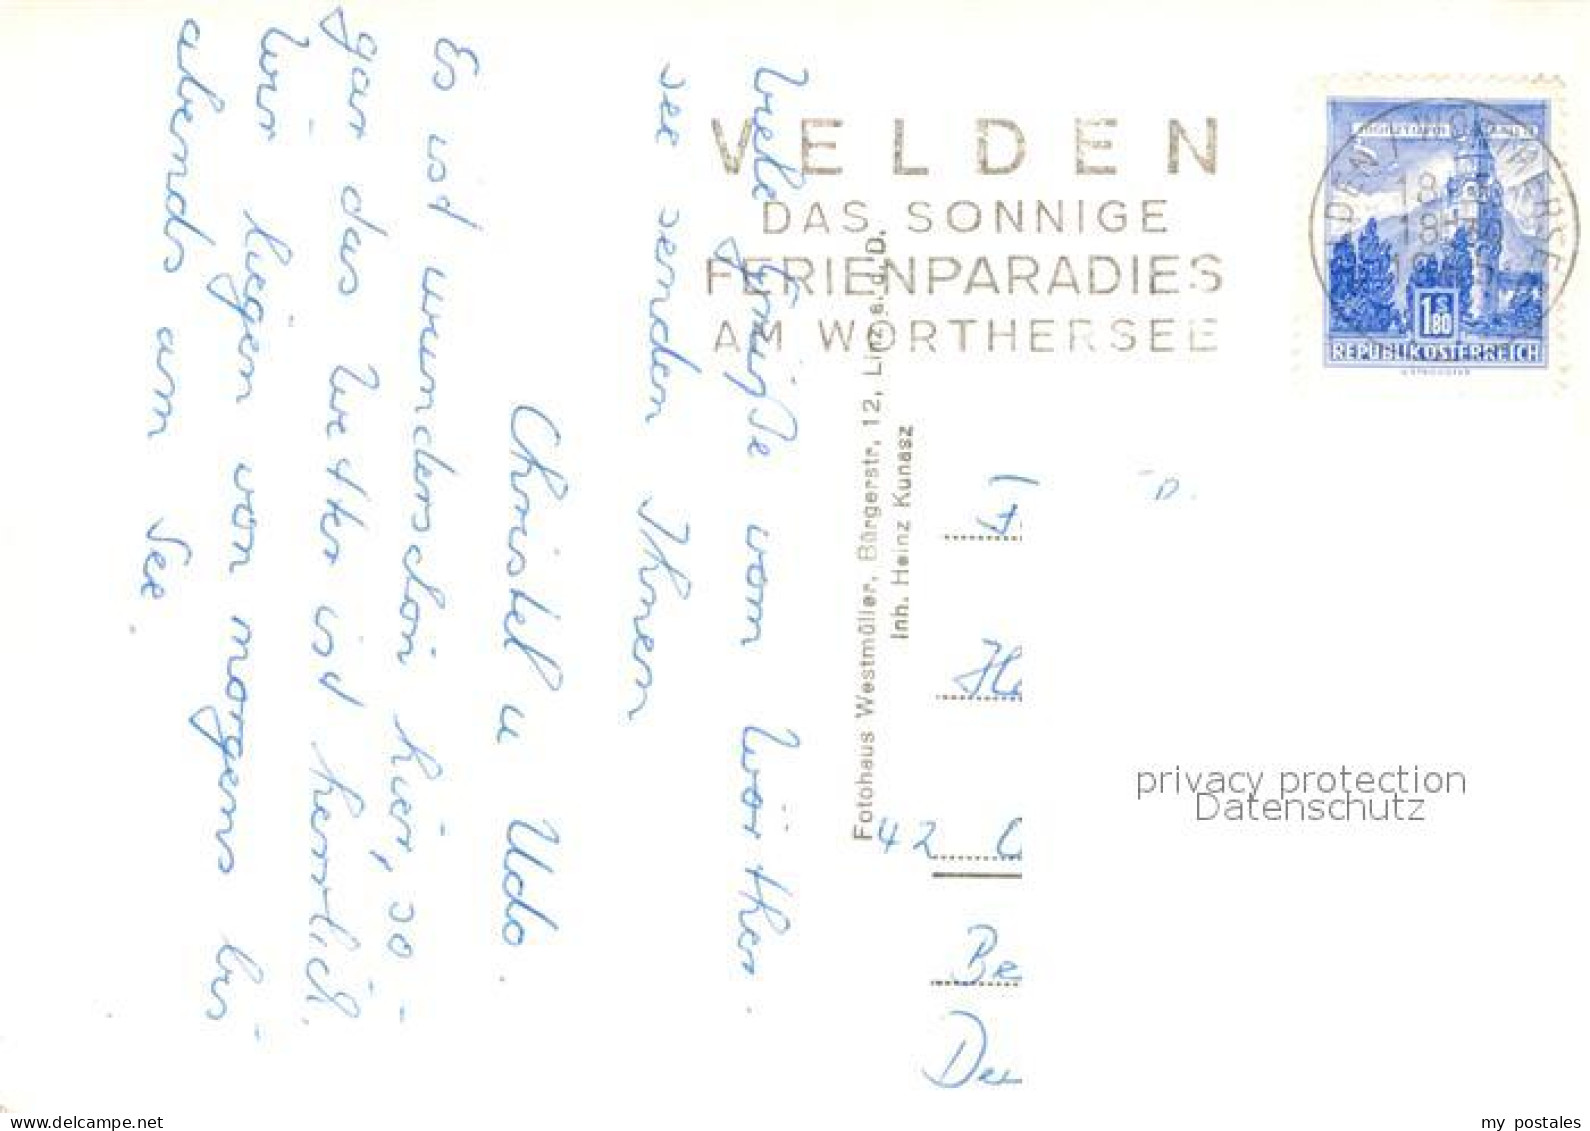 Viele Grüße vom Wörther-
see senden Ihnen
Christel u Udo.
Es ist wunderschön hier, so-
gar das Wetter ist herrlich.
Wir liegen von morgens bis
abends am See.
VELDEN
DAS SONNIGE
FERIENPARADIES
AM WÖRTHERSEE
18
1S80
REPUBLIK ÖSTERREICH
Fotohaus Westmüller, Bürgerstr. 12, Linz a. d. D.
Inh. Heinz Kunasz
42
privacy protection
Datenschutz
delcampe.net
my postales